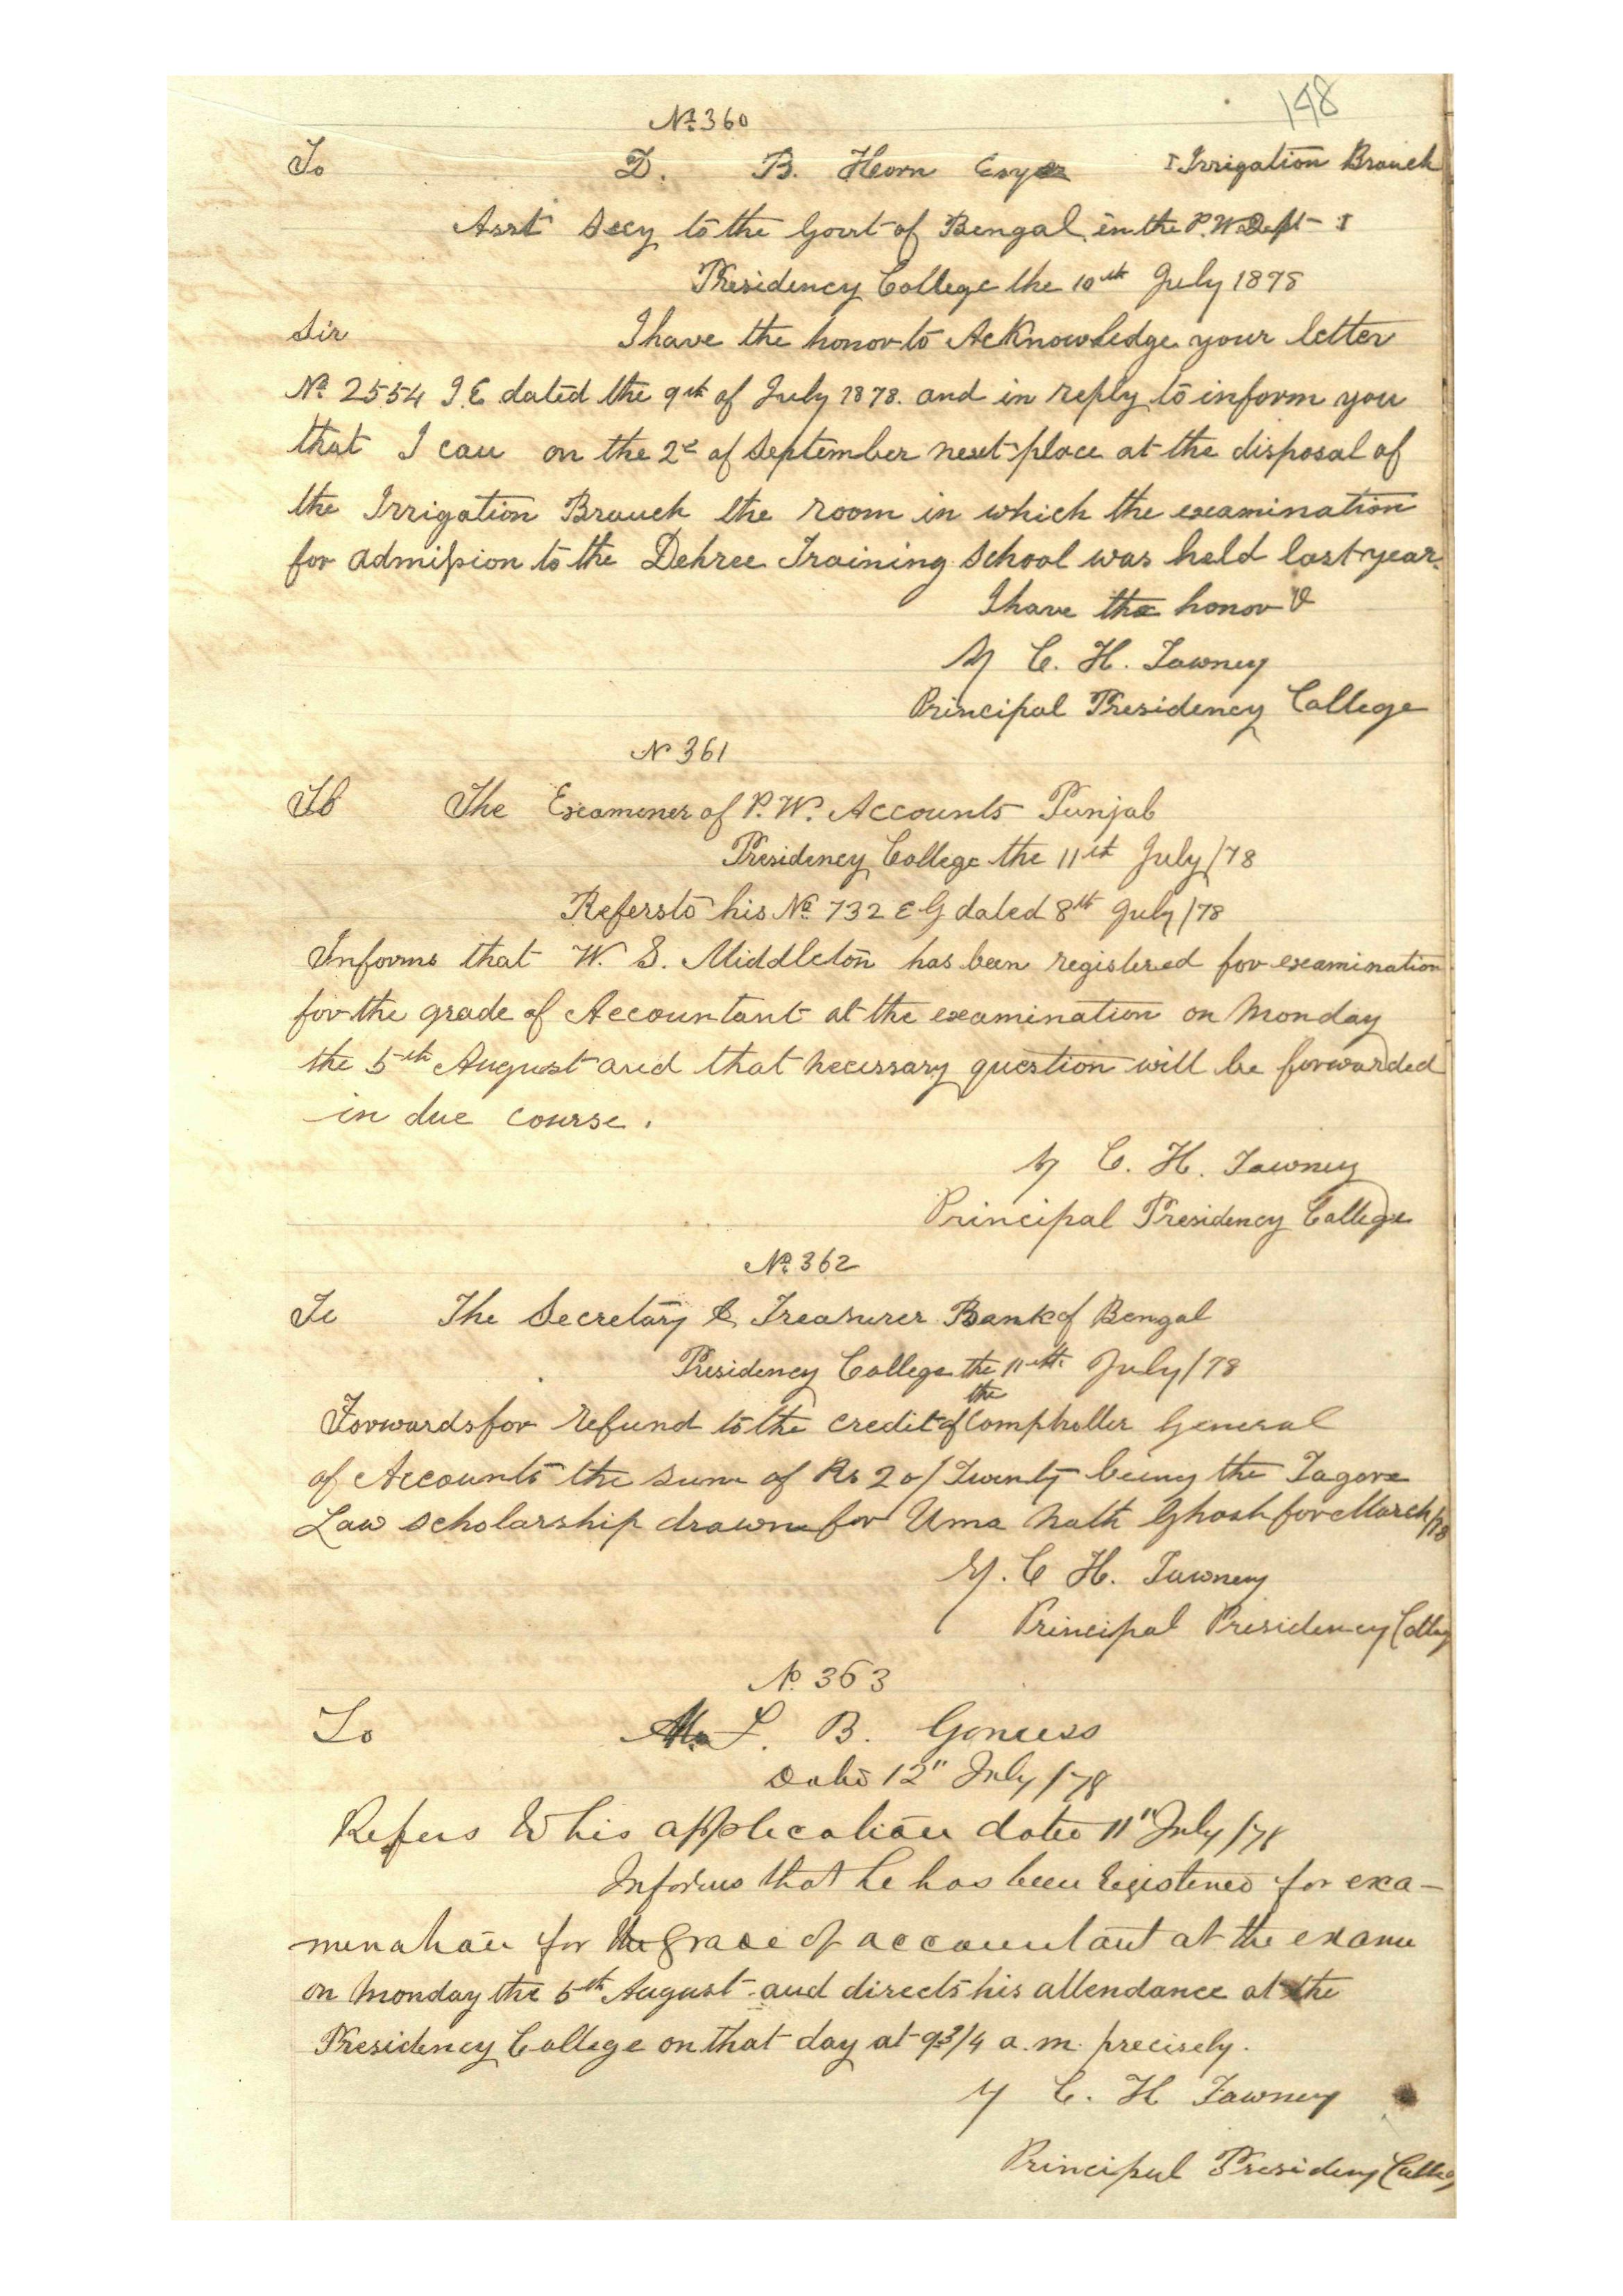 148
No. 360
To D. B. Horn Esqr Irrigation Branch
Asst Secy to the Govt of Bengal in the P.W. Dept
Presidency College the 10th July 1878
Sir I have the honor to Acknowledge your letter
No. 2554 I.E dated the 9th of July 1878. and in reply to inform you
that I can on the 2d of September next place at the disposal of
the Irrigation Branch the room in which the examination
for admission to the Dehree Training School was held last year.
I have the honor &
C. H. Tawney
Principal Presidency College
No 361
To The Examiner of P.W. Accounts Punjab
Presidency College the 11th July /78
Refers to his No. 732 E G dated 8th July /78
Informs that W. S. Middleton has been registered for examination
for the grade of Accountant at the examination on Monday
the 5th August and that necessary question will be forwarded
in due course.
C. H. Tawney
Principal Presidency College
No. 362
To The Secretary & Treasurer Bank of Bengal
Presidency College the 11th July /78
Forwards for refund to the credit of the Comptroller General
of Accounts the sum of Rs 20/ Twenty being the Tagore
Law scholarship drawn for Uma Nath Ghosh for March /78
C H. Tawney
Principal Presidency College
No. 363
To L. B.
Date 12" July /78
Refers to his application dated 11" July /78
Informs that he has been registered for exa-
mination for the grade of accountant at the exam
on Monday the 5th August and directs his attendance at the
Presidency College on that day at 9 3/4 a.m. precisely.
C. H Tawney
Principal Presidency College